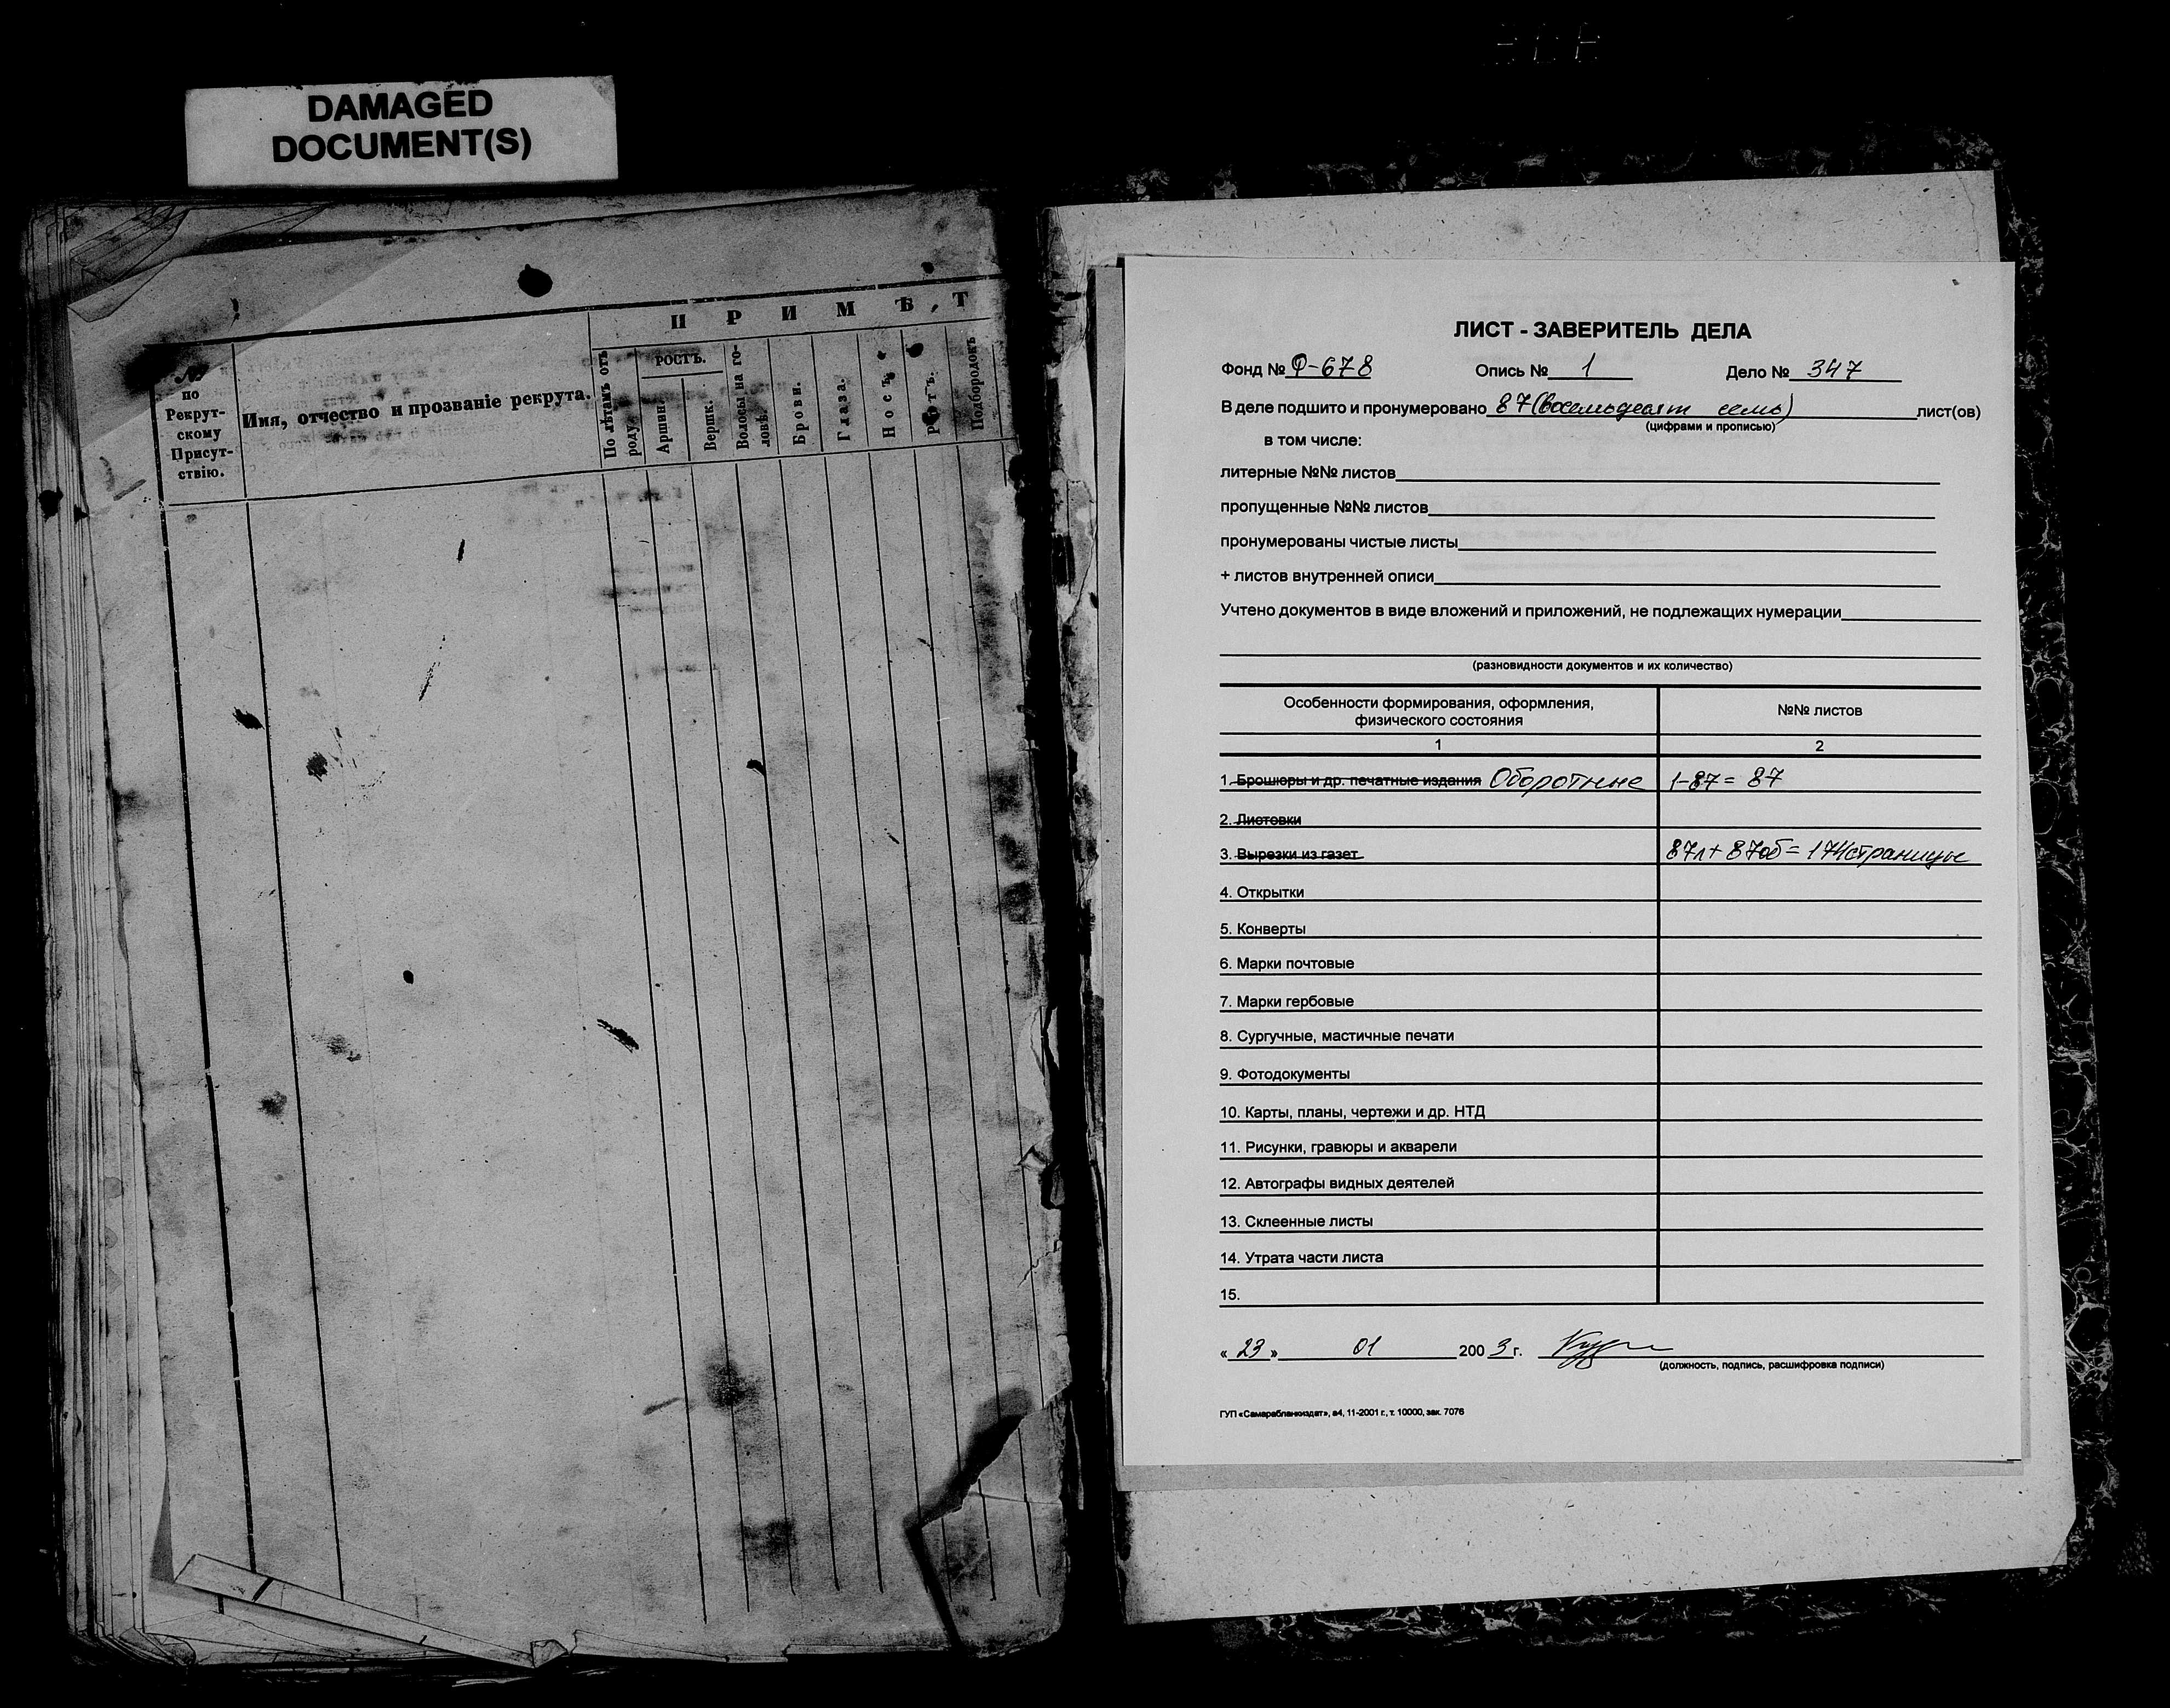 DAMAGED
DOCUMENT(S)
П Р И М Ѣ Т
№
по
Рекрут-
скому
Присут-
ствію.
Имя, отчество и прозваніе рекрута.
По лѣтамъ отъ
роду.
РОСТЪ.
Аршин.
Вершк.
Волосы на го-
ловѣ.
Брови.
Глаза.
Носъ.
Ротъ.
Подбородокъ
ЛИСТ - ЗАВЕРИТЕЛЬ ДЕЛА
Фонд № Ф-678 Опись № 1 Дело № 347
В деле подшито и пронумеровано 87 (восемьдесят семь) лист(ов)
(цифрами и прописью)
в том числе:
литерные №№ листов
пропущенные №№ листов
пронумерованы чистые листы
+ листов внутренней описи
Учтено документов в виде вложений и приложений, не подлежащих нумерации
(разновидности документов и их количество)
Особенности формирования, оформления,
физического состояния
№№ листов
1 2
1. Брошюры и др. печатные издания Оборотные 1-87 = 87
2. Листовки
3. Вырезки из газет 87л + 87об = 174 страницы
4. Открытки
5. Конверты
6. Марки почтовые
7. Марки гербовые
8. Сургучные, мастичные печати
9. Фотодокументы
10. Карты, планы, чертежи и др. НТД
11. Рисунки, гравюры и акварели
12. Автографы видных деятелей
13. Склеенные листы
14. Утрата части листа
15.
« 23 » 01 200 3 г.
(должность, подпись, расшифровка подписи)
ГУП «Самарабланкиздат», а4, 11-2001 г., т. 10000, зак. 7076